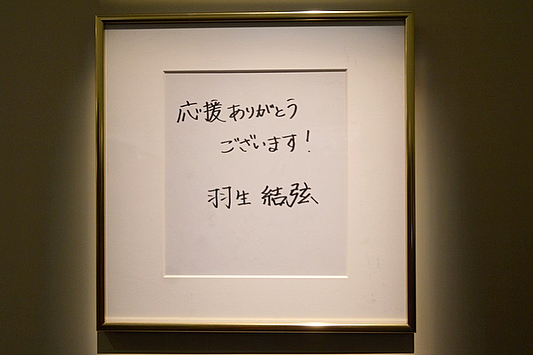 応援ありがとう
ございます!
羽生 結弦